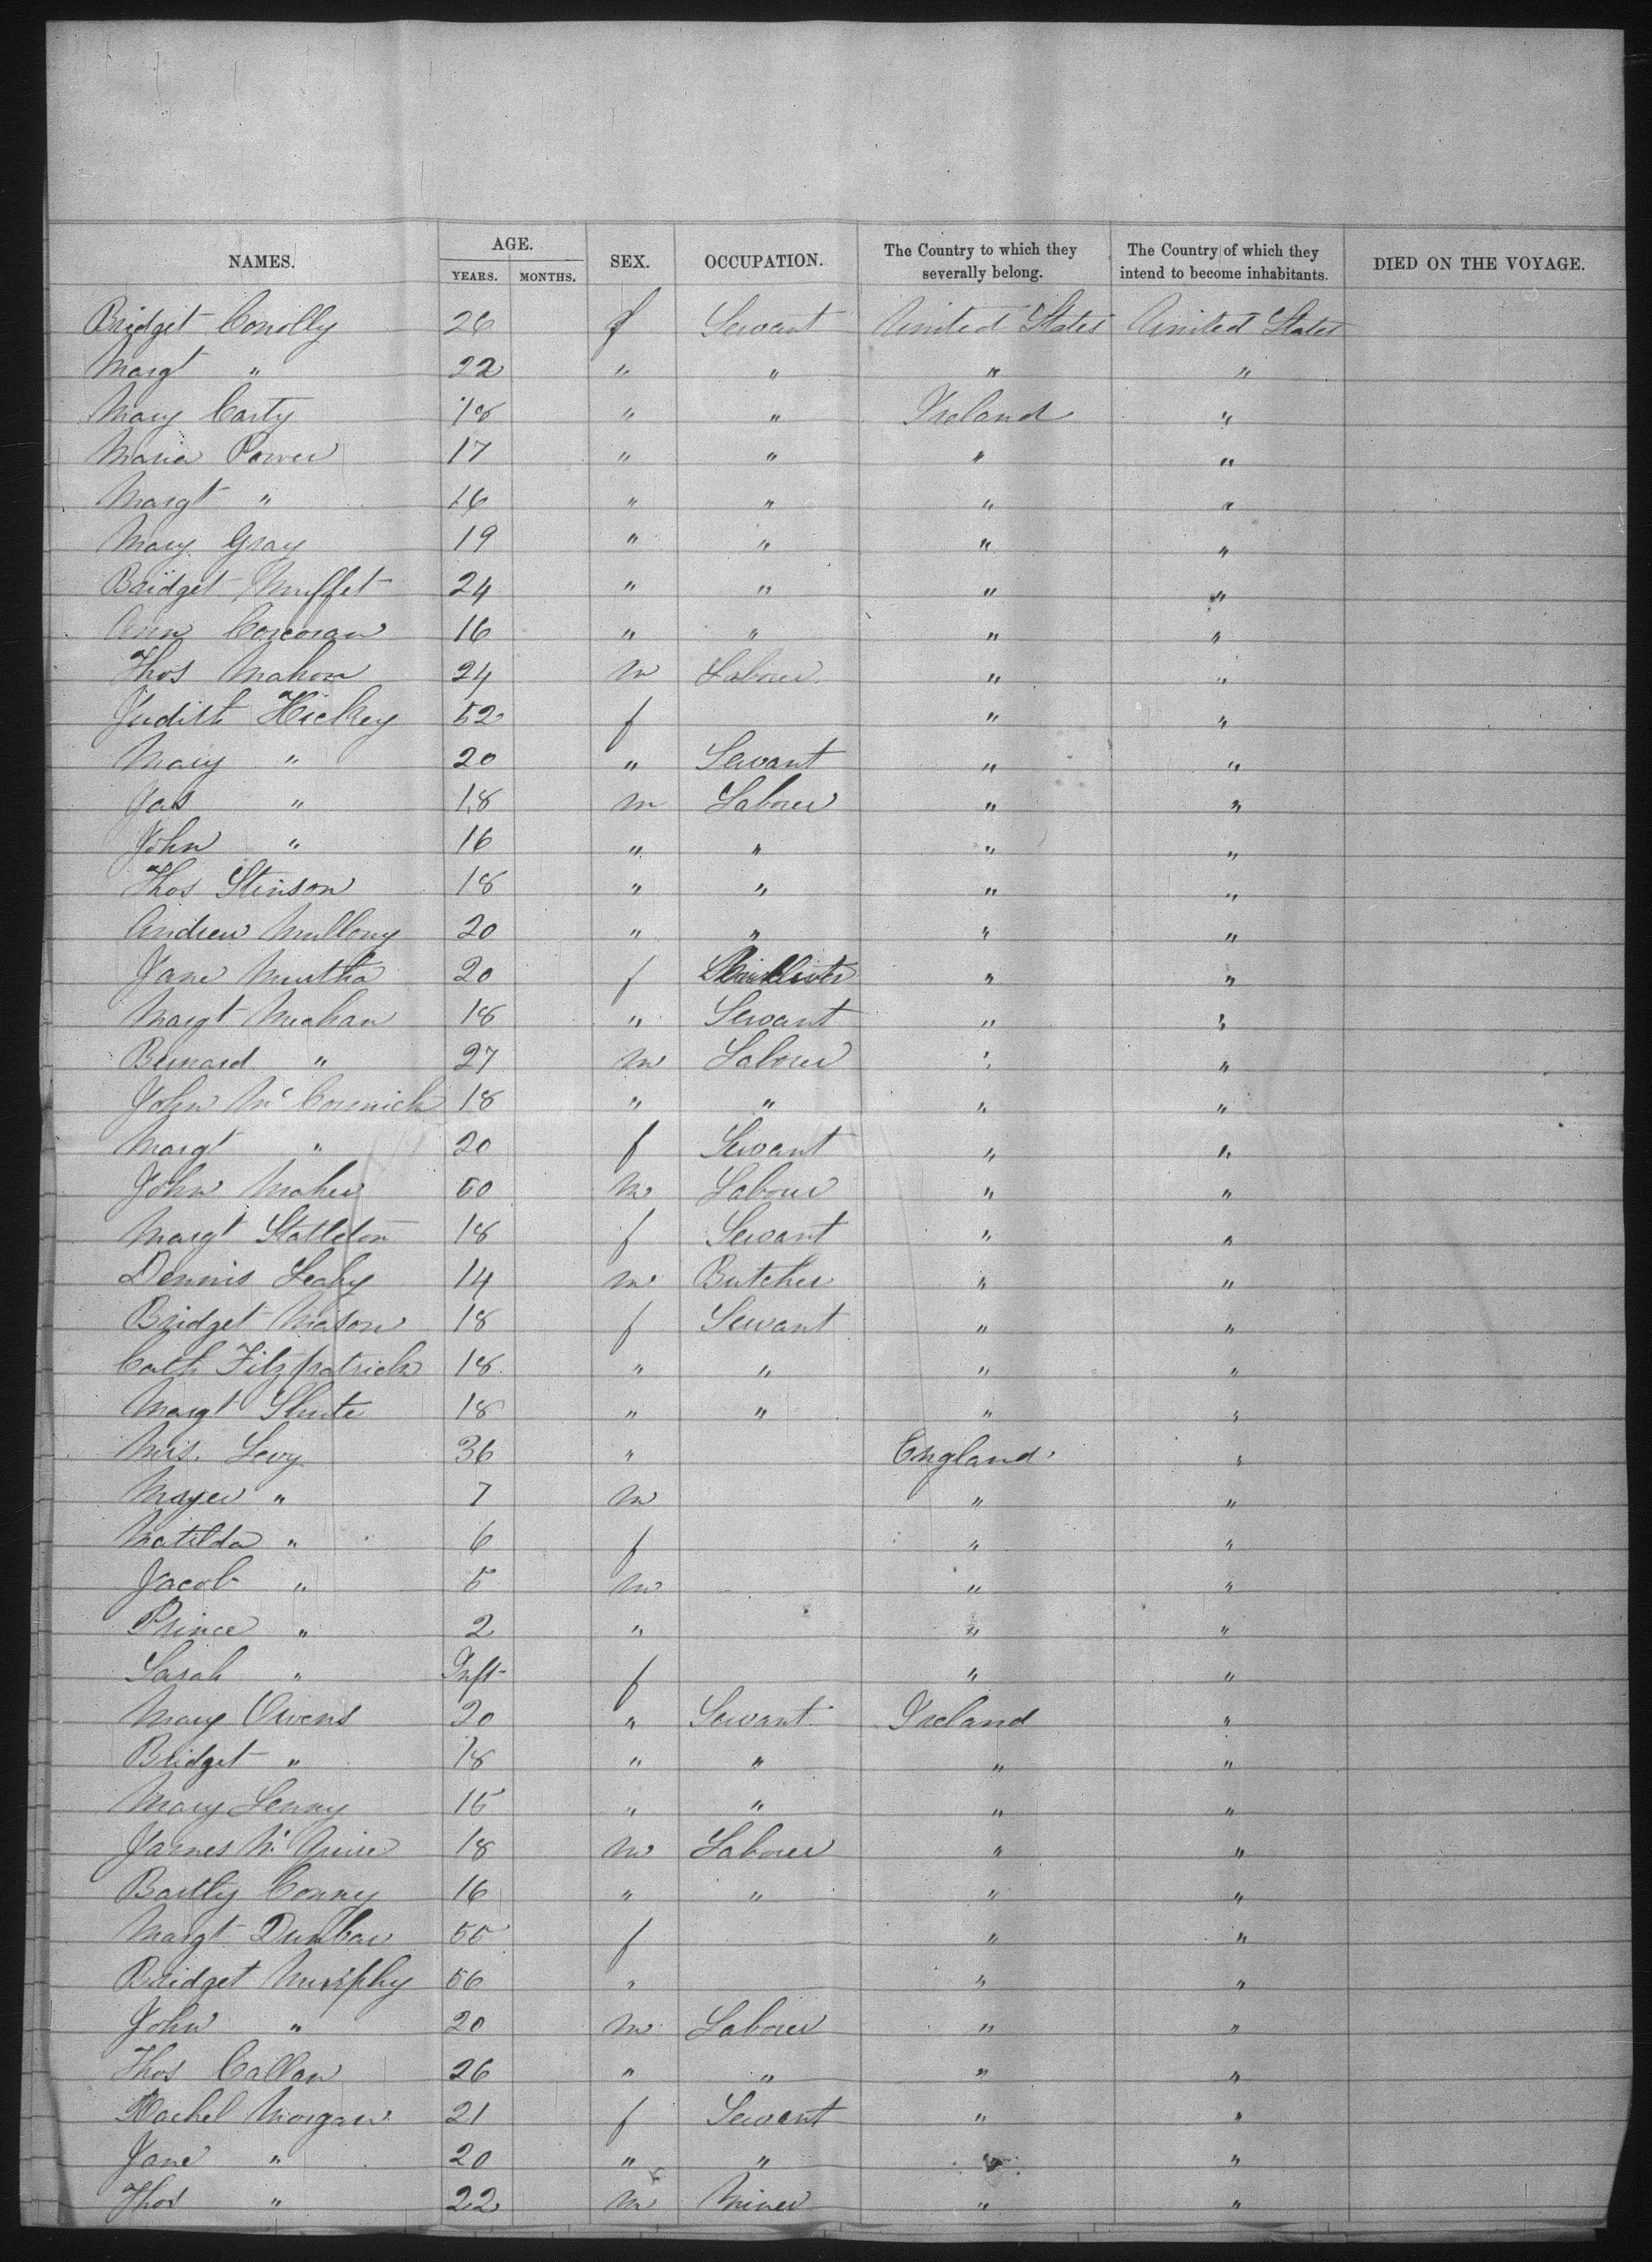 NAMES. AGE. SEX. OCCUPATION. The Country to which they severally belong. The Country of which they intend to become inhabitants. DIED ON THE VOYAGE.
YEARS. MONTHS.
Bridget Conolly 26 f Servant United States United States
Margt " 22 " " " "
Mary Carty 18 " " Ireland "
Maria Power 17 " " " "
Margt " 16 " " " "
Mary Gray 19 " " " "
Bridget Muffet 24 " " " "
Ann Corcoran 16 " " " "
Thos Mahon 24 m Laborer " "
Judith Hickey 52 f " "
Mary " 20 " Servant " "
Jas " 18 m Laborer " "
John " 16 " " " "
Thos Stinson 18 " " " "
Andrew Mullony 20 " " " "
Jane Murtha 20 f " "
Margt Meahan 18 " Servant " "
Bernard " 27 m Laborer " "
John McCormick 18 " " " "
Margt " 20 f Servant " "
John Maher 50 m Laborer " "
Margt 18 f Servant " "
Dennis Leahy 14 m Butcher " "
Bridget Mason 18 f Servant " "
Cath Fitzpatrick 18 " " " "
Margt Shute 18 " " " "
Mrs. Levy 36 " England "
Mayer " 7 m " "
Matilda " 6 f " "
Jacob " 5 m " "
Prince " 2 " " "
Sarah " Inft f " "
Mary Owens 20 " Servant Ireland "
Bridget " 18 " " " "
Mary Lenny 15 " " " "
James 18 m Laborer " "
Bartly Conny 16 " " " "
Margt Dunbar 55 f " "
Bridget Murphy 56 " " "
John " 20 m Laborer " "
Thos Callan 26 " " " "
Rachel Morgan 21 f Servant " "
Jane " 20 " " " "
Thos " 22 m Miner " "